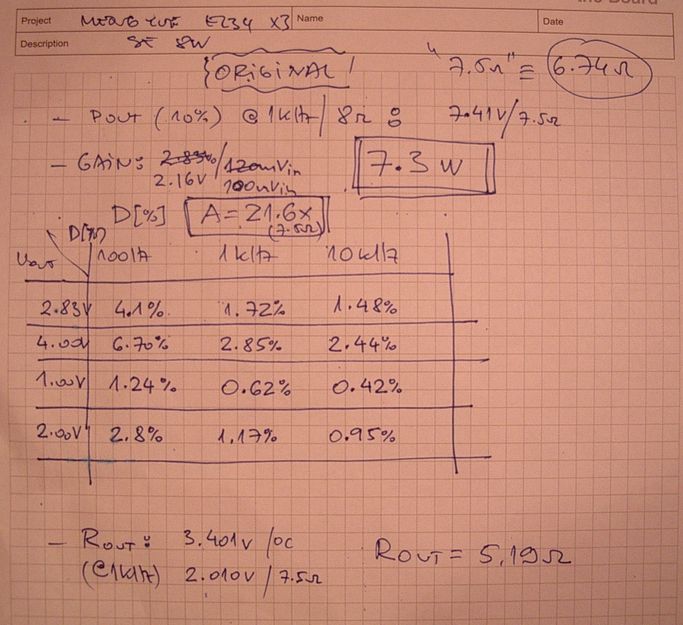 Project
Name
Date
Description SE 8W
ORIGINAL
"7.5Ω" ≡ 6.74Ω
- POUT (10%) @ 1kHz/8Ω : 7.41V/7.5Ω
- GAIN: 2.83V/120mVin
2.16V/100mVin
7.3 W
D[%] A=21.6x
(7.5Ω)
D[%]
VOUT 100Hz 1kHz 10kHz
2.83V 4.1% 1.72% 1.48%
4.00V 6.70% 2.85% 2.44%
1.00V 1.24% 0.62% 0.42%
2.00V 2.8% 1.17% 0.95%
- ROUT: 3.401V/OC
(@1kHz) 2.010V/7.5Ω
ROUT = 5,19Ω